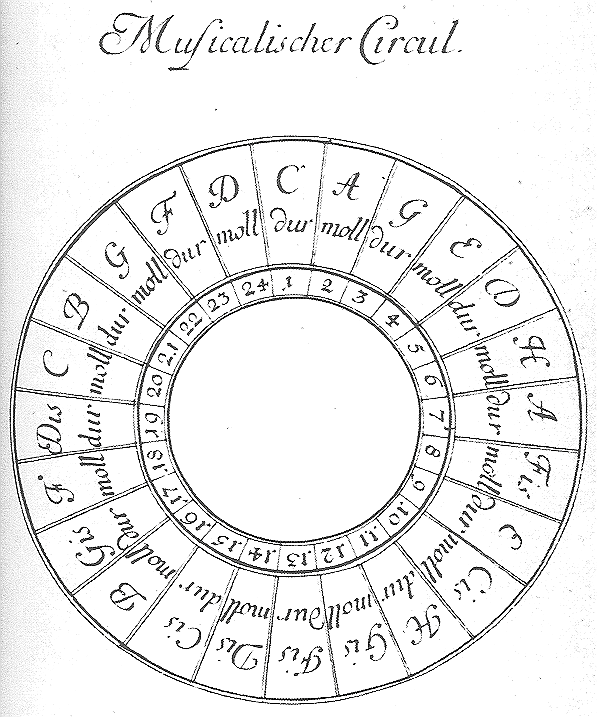 Muſicalischer Circul.
C dur 1
A moll 2
G dur 3
E moll 4
D dur 5
H moll 6
A dur 7
Fis moll 8
E dur 9
Cis moll 10
H dur 11
Gis moll 12
Fis dur 13
Dis moll 14
Cis dur 15
B moll 16
Gis dur 17
F. moll 18
Dis dur 19
C moll 20
B dur 21
G moll 22
F dur 23
D moll 24